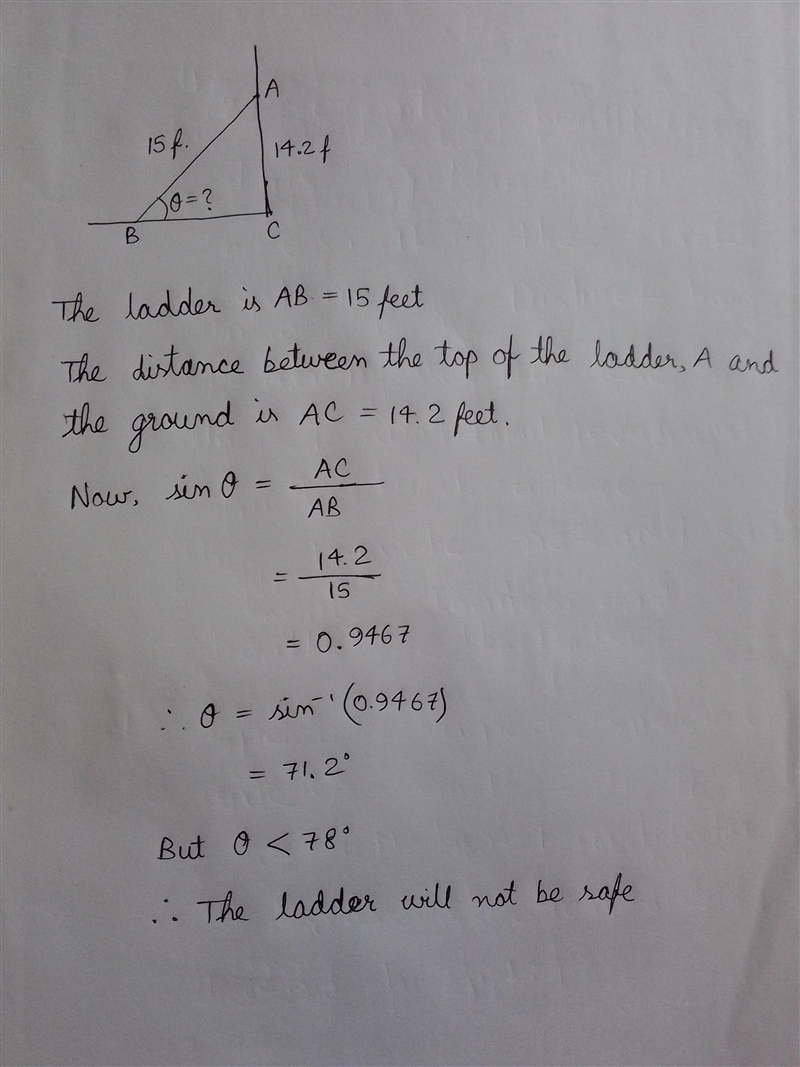 A
15 f.
14.2 f
θ = ?
B
C
The ladder is AB = 15 feet
The distance between the top of the ladder, A and
the ground is AC = 14.2 feet.
Now, sin θ = AC / AB
= 14.2 / 15
= 0.9467
∴ θ = sin⁻¹ (0.9467)
= 71.2°
But θ < 78°
∴ The ladder will not be safe